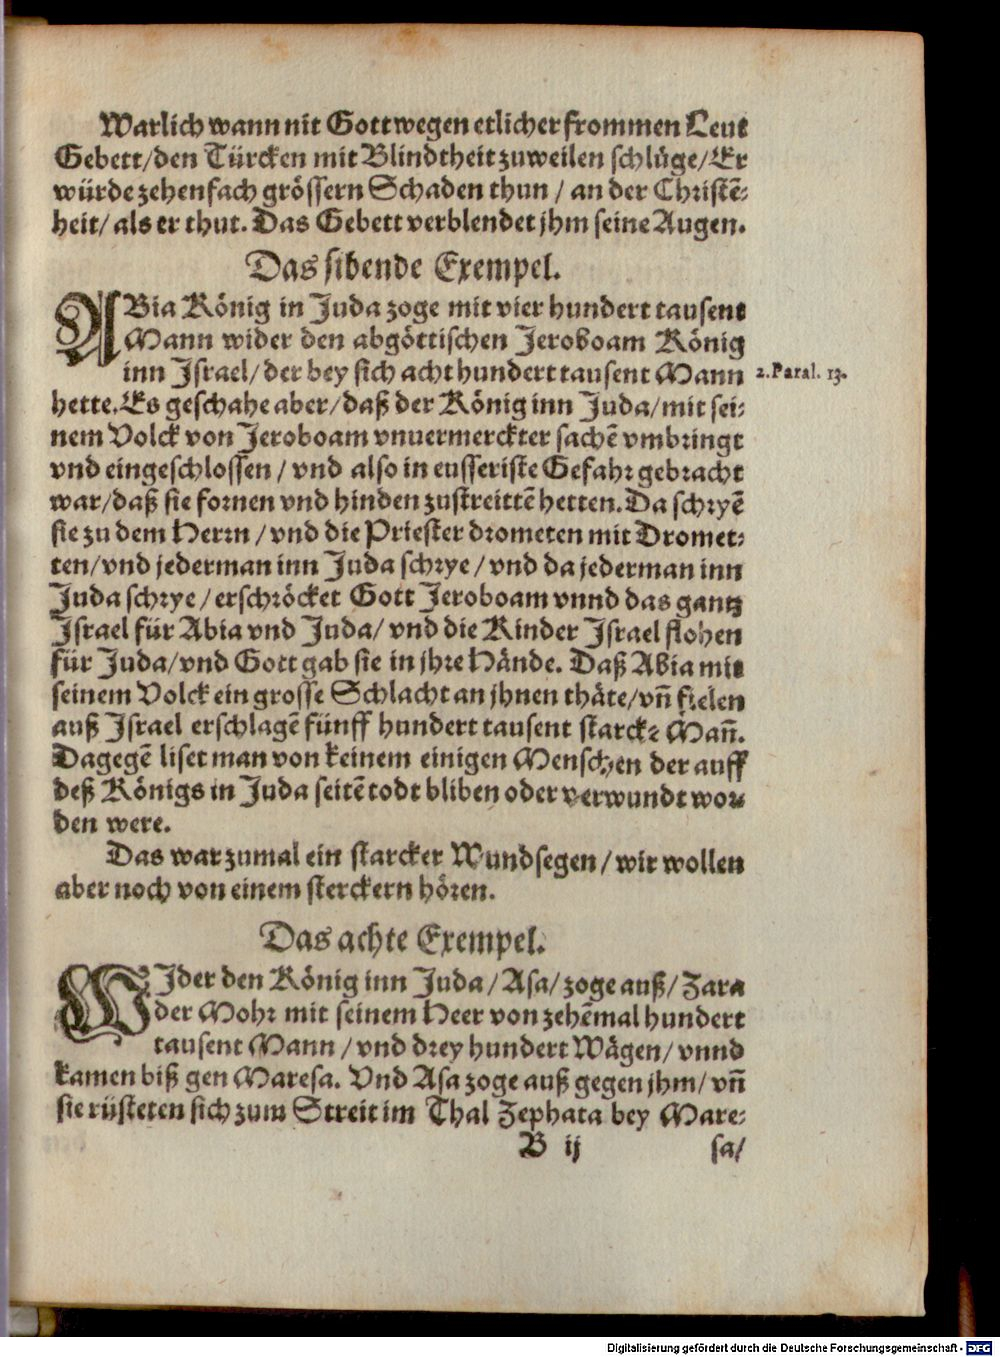 Warlich wann nit Gott wegen etlicher frommen Leut
Gebett/den Türcken mit Blindtheit zuweilen schlüge/Er
würde zehenfach grössern Schaden thun / an der Christē-
heit/ als er thut. Das Gebett verblendet jhm seine Augen.
Das sibende Exempel.
ABia König in Juda zoge mit vier hundert tausent
Mann wider den abgöttischen Jeroboam König
inn Israel/ der bey sich acht hundert tausent Mann
2. Paral. 13.
hette. Es geschahe aber/daß der König inn Juda/mit sei-
nem Volck von Jeroboam vnuermerckter sachē vmbringt
vnd eingeschlossen / vnd also in eusseriste Gefahr gebracht
war/daß sie fornen vnd hinden zustreittē hetten. Da schryē
sie zu dem Herrn / vnd die Priester drometen mit Dromet-
ten/vnd jederman inn Juda schrye / vnd da jederman inn
Juda schrye / erschröcket Gott Jeroboam vnnd das gantz
Israel für Abia vnd Juda/ vnd die Kinder Israel flohen
für Juda/vnd Gott gab sie in jhre Hände. Daß Abia mit
seinem Volck ein grosse Schlacht an jhnen thäte/vñ fielen
auß Israel erschlagē fünff hundert tausent starcke Mañ.
Dagegē liset man von keinem einigen Menschen der auff
deß Königs in Juda seitē todt bliben oder verwundt wor-
den were.
Das war zumal ein starcker Wundsegen / wir wollen
aber noch von einem sterckern hören.
Das achte Exempel.
WIder den König inn Juda / Asa/ zoge auß/ Zara
der Mohr mit seinem Heer von zehēmal hundert
tausent Mann / vnd drey hundert Wägen/ vnnd
kamen biß gen Maresa. Vnd Asa zoge auß gegen jhm/ vñ
sie rüsteten sich zum Streit im Thal Zephata bey Mare-
B ij
sa/
Digitalisierung gefördert durch die Deutsche Forschungsgemeinschaft - DFG